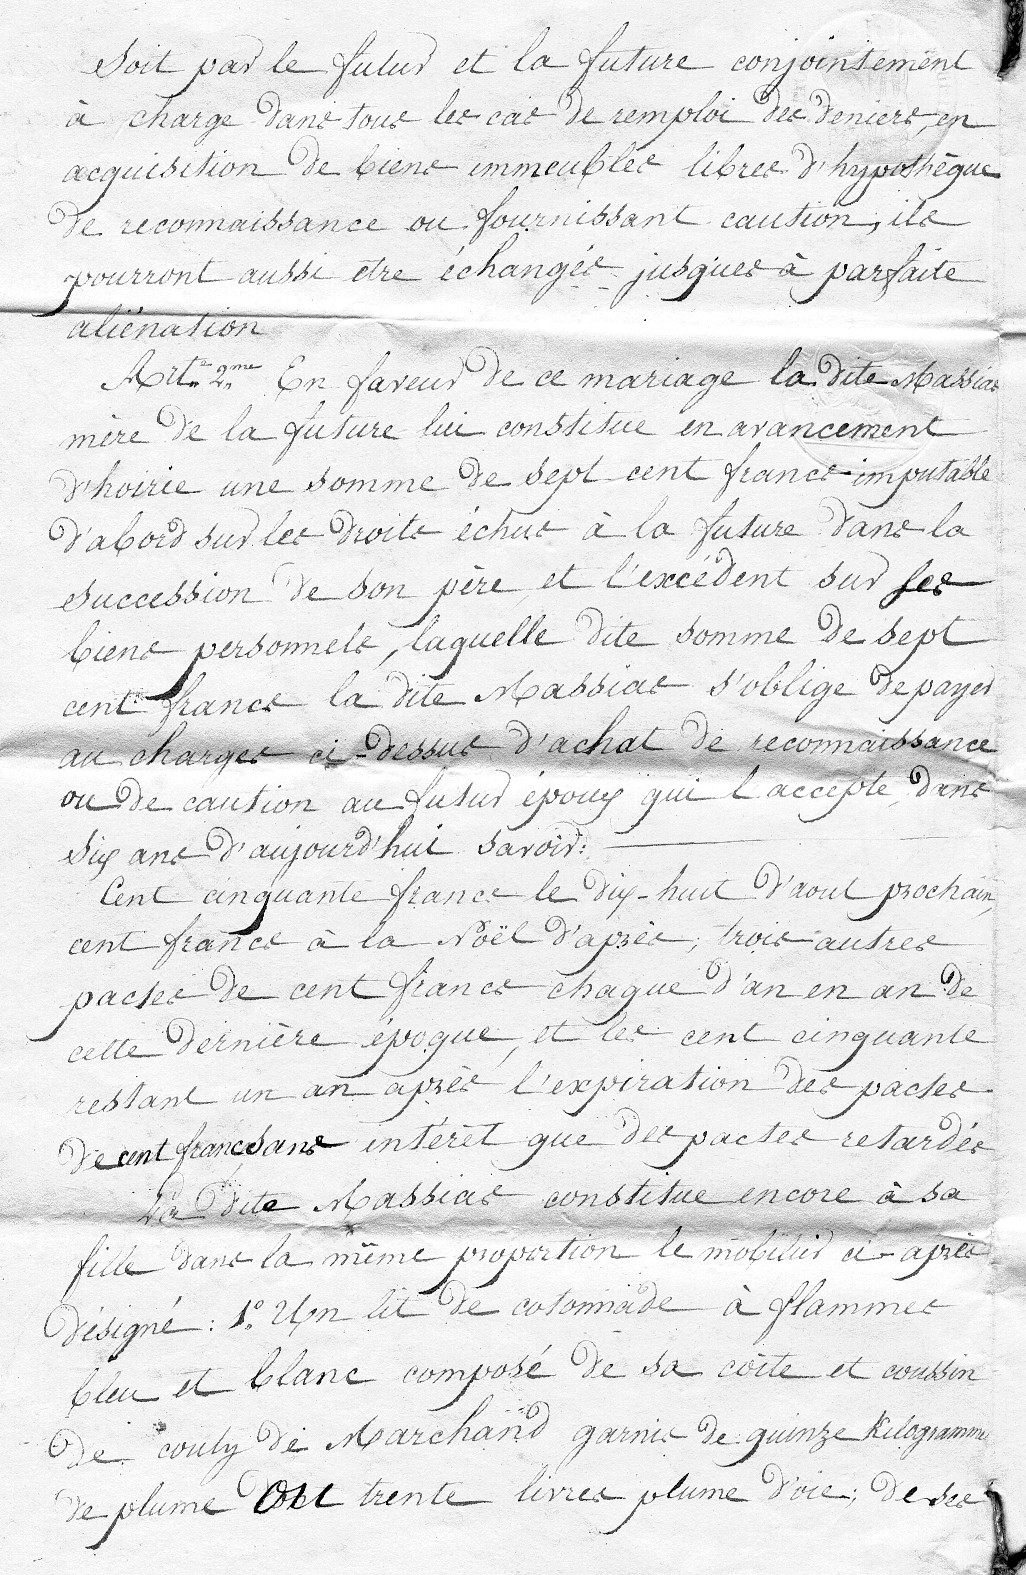 soit par le futur et la future conjointement
à charge dans tous les cas de remploi des deniers, en
acquisition de biens immeubles libres d'hypothèque
de reconnaissance ou fournissant caution, ils
pourront aussi être échangés jusques à parfaite
aliénation
Art.e 2.me En faveur de ce mariage la dite Massias
mère de la future lui constitue en avancement
d'hoirie une somme de sept cent francs imputable
d'abord sur les droits échus à la future dans la
succession de son père et l'excédent sur ses
biens personnels, laquelle dite somme de sept
cents francs la dite Massias s'oblige de payer
au charges ci-dessus d'achat de reconnaissance
ou de caution au futur époux qui l'accepte, dans
six ans d'aujourd'hui savoir:
Cent cinquante francs le dix-huit d'aout prochain,
cent francs à la Noël d'après; trois autres
pactes de cent francs chaque d'an en an de
cette dernière époque, et les cent cinquante
restant un an après l'expiration des pactes
de cent francs sans intérêt que des pactes retardés
La dite Massias constitue encore à sa
fille dans la même proportion le mobilier ci-après
désigné: 1.° Un lit de cotonnade à flammes
bleu et blanc composé de sa coite et coussin
de couty de Marchand garnis de quinze Kilogrammes
de plume ou trente livres plume d'oie; de ses